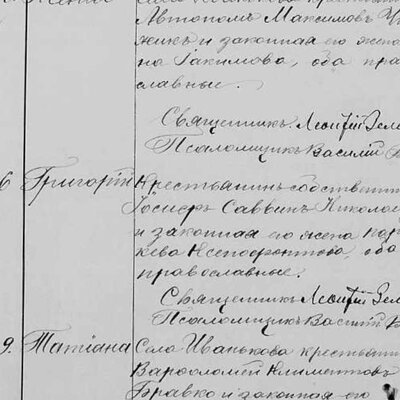 Автономъ Максимовъ
жикъ и законная его жена
на Іакимова, оба пра
славные.
Священникъ Леонтій Зел
Псаломщикъ Василій
6 Григорій Крестьянинъ собственни
Іосифъ Саввинъ Никола
и законная его жена Пар
кева Ксенофонтова, оба
православные.
Священникъ Леонтій Зел
Псаломщикъ Василій
9. Татіана Села Иванькова крестьян
Варѳоломей Климентовъ
Бравко и законная его